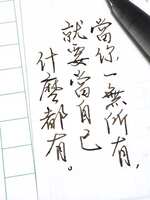 當你一無所有，
就要當自己
什麼都有。